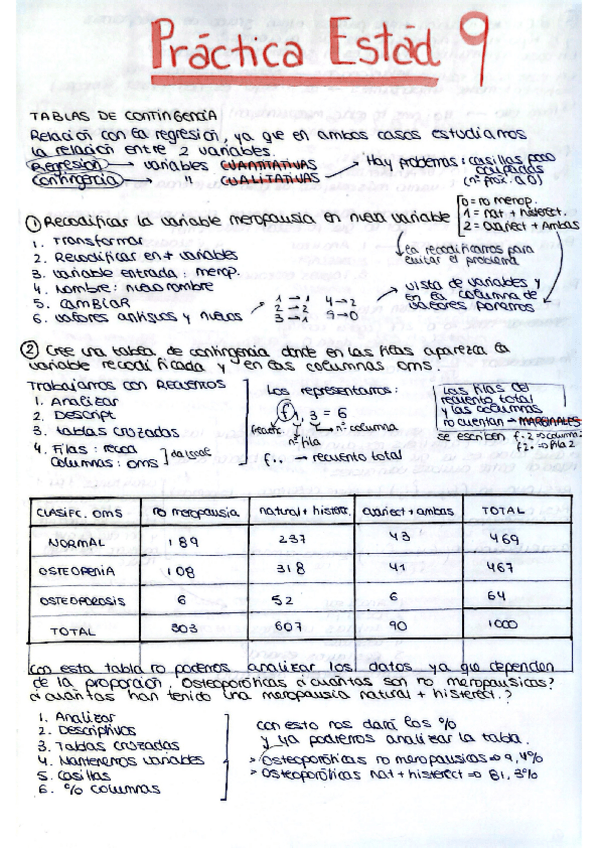 Práctica Estad 9
TABLAS DE CONTINGENCIA
Relación con la regresión, ya que en ambos casos estudiamos
la relación entre 2 variables.
Regresión → variables CUANTITATIVAS
Contingencia → " CUALITATIVAS
Hay problemas: casillas poco
ocupadas
(nº próx. a 0)
① Recodificar la variable menopausia en nueva variable
0 = no menop.
1 = nat + histerect.
2 = Ovariect + Ambas
1. Transformar
2. Recodificar en ≠ variables
3. variable entrada: menop.
4. Nombre: nuevo nombre
5. CAMBIAR
6. valores antiguos y nuevos
1→1 4→2
2→2 9→0
3→1
la recodificamos para
evitar el problema
vista de variables y
en la columna de
valores ponemos
② Cree una tabla de contingencia donde en las filas aparezca la
variable recodificada y en las columnas OMS.
Trabajamos con Recuentos
1. Analizar
2. Descript
3. Tablas cruzadas
4. Filas: recod
Columnas: OMS
Los representamos:
f 1, 3 = 6
frecuenc.
nº fila
nº columna
f.. → recuento total
Las filas del
recuento total
y las columnas
no cuentan → MARGINALES
se escriben f.2 ⇒ columna 2
f2. ⇒ Fila 2
CLASIFC. OMS no menopausia natural + histerr. ovariect + ambas TOTAL
NORMAL 189 237 43 469
OSTEOPENIA 108 318 41 467
OSTEOPOROSIS 6 52 6 64
TOTAL 303 607 90 1000
Con esta tabla no podemos analizar los datos ya que dependen
de la proporción. Osteoporóticas ¿cuántas son no menopausicas?
¿cuántas han tenido una menopausia natural + histerect.?
1. Analizar
2. Descriptivos
3. Tablas cruzadas
4. Mantenemos variables
5. Casillas
6. % columnas
con esto nos dará los %
y ya podremos analizar la tabla.
> Osteoporóticas no menopausicas ⇒ 9,4%
> Osteoporóticas nat + histerect ⇒ 81,3%